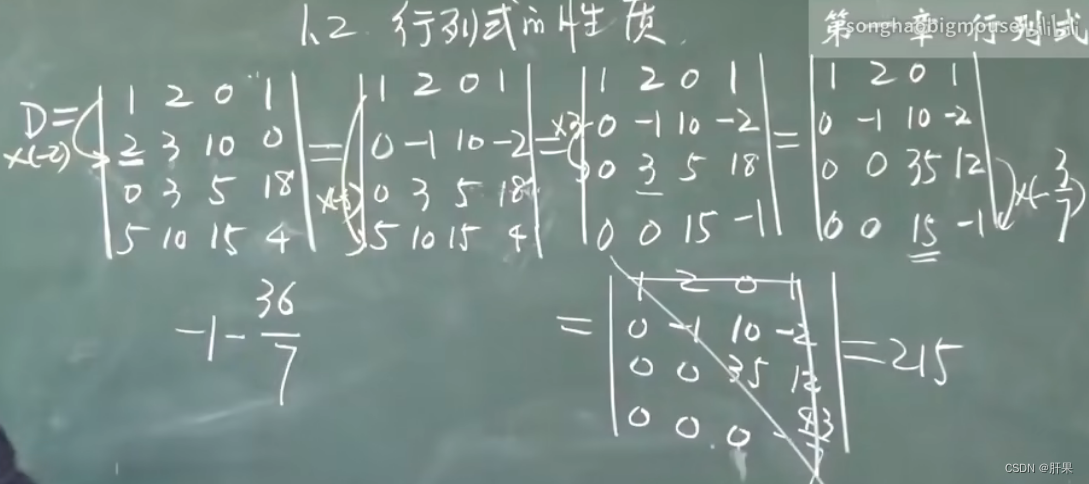 1.2 行列式的性质
第一章 行列式
songhaobigmouse
bilibili
D= | 1 2 0 1 | = | 1 2 0 1 | = | 1 2 0 1 | = | 1 2 0 1 |
×(-2) | 2 3 10 0 | | 0 -1 10 -2 | ×3 | 0 -1 10 -2 | | 0 -1 10 -2 |
| 0 3 5 18 | ×(-5) | 0 3 5 18 | | 0 3 5 18 | | 0 0 35 12 | ×(-3/7)
| 5 10 15 4 | | 5 10 15 4 | | 0 0 15 -1 | | 0 0 15 -1 |
-1 - 36/7
= | 1 2 0 1 |
| 0 -1 10 -2 | = 215
| 0 0 35 12 |
| 0 0 0 -43/7 |
CSDN @肝果